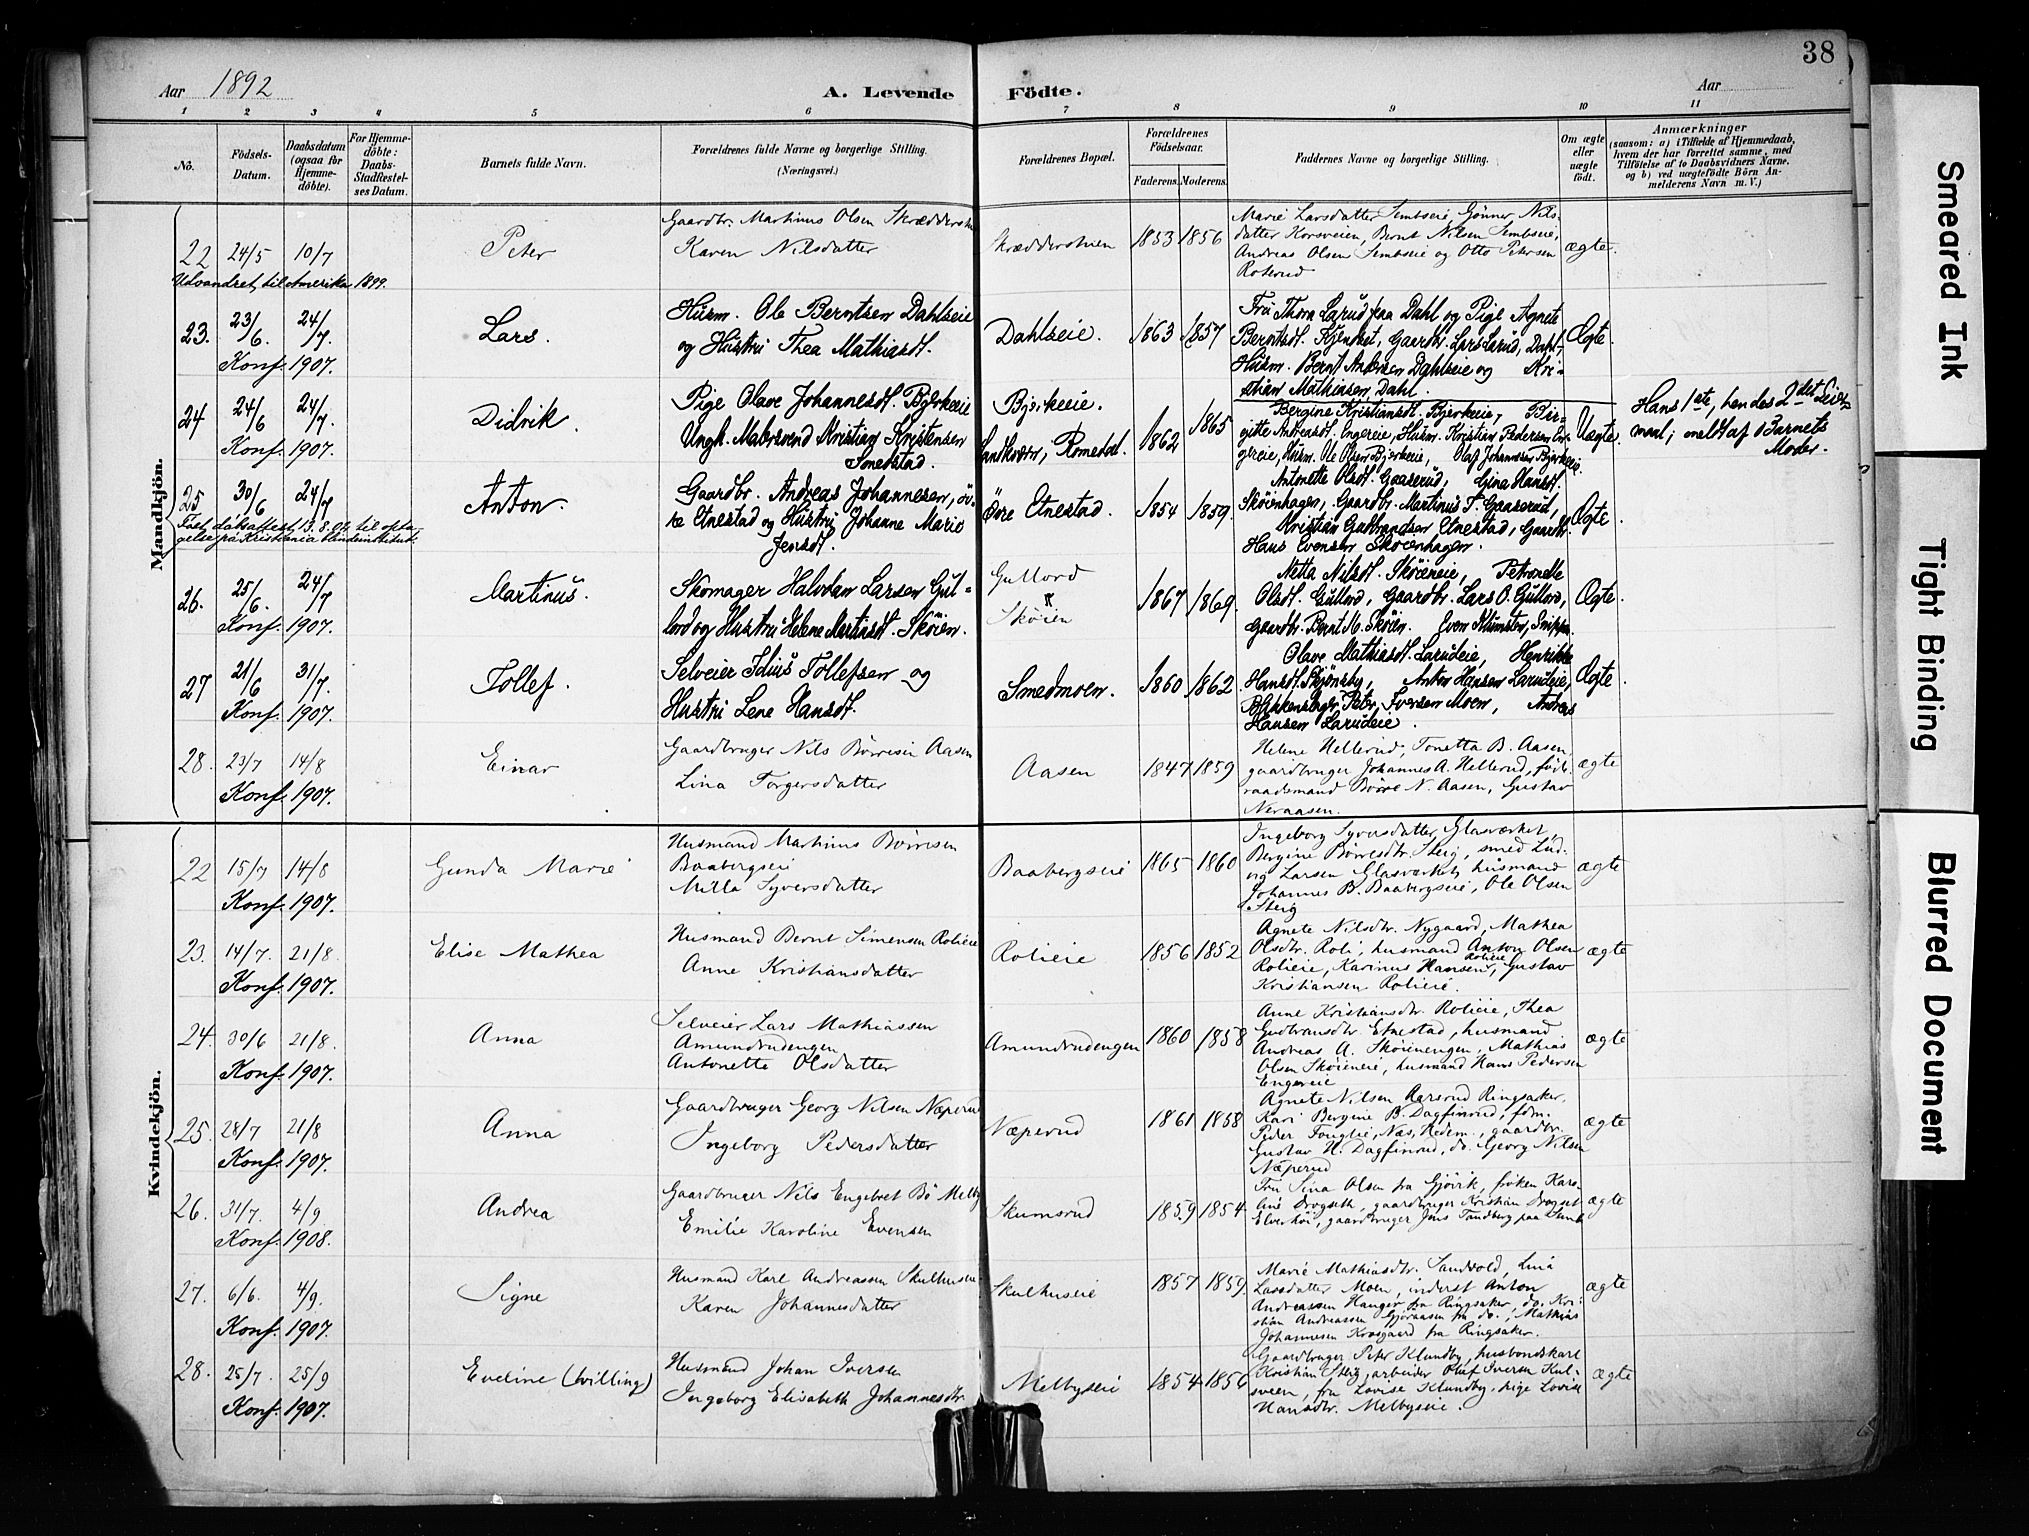 38
Aar 1892
A. Levende Födte.
Aar
1 2 3 4 5 6 7 8 9 10 11
No.
Födsels-Datum.
Daabsdatum (ogsaa for Hjemmedöbte).
For Hjemmedöbte: Daabs-Stadfæstelses Datum.
Barnets fulde Navn.
Forældrenes fulde Navne og borgerlige Stilling.
(Næringsvei.)
Forældrenes Bopæl.
Forældrenes Födselsaar.
Faderens. Moderens.
Faddernes Navne og borgerlige Stilling.
Om ægte eller uægte födt.
Anmærkninger
(saasom: a) i Tilfælde af Hjemmedaab, hvem der har forrettet samme, med Tilföielse af to Daabsvidners Navne. og b) ved uægtefödte Börn Anmelderens Navn m. V.)
Mandkjön.
22 24/5 10/7 Peter
Gaardbr. Martinus Olsen Skrædderstuen
Karen Nilsdatter
Skrædderstuen 1853 1856
Marie Larsdatter Sembseie, Gönner Nils-
datter Korsveien, Bernt Nilsen Sembseie,
Andreas Olsen Sembseie og Otto Petersen
Roterud
ægte.
Udvandret til Amerika 1899.
23. 23/6. 24/7. Lars.
Konf. 1907.
Husm. Ole Berntsen Dahlseie
og Hustru Thea Mathiasdt.
Dahlseie. 1863 1857
Fru Thora Larud paa Dahl og Pige Agnete
Berntsdt. Kjendset, Gaardbr. Lars Larud, Dahl,
Husm. Bernt Andersen Dahlseie og Kri-
stian Mathiasen Dahl.
Ægte.
24 24/6 24/7. Didrik.
Konf. 1907.
Pige Olave Johannesdt. Bjerkeeie
Ungk. Malersvend Kristian Kristensen
Smedstad.
Bjerkeeie.
Sandkværn, Romedal. 1862 1865
Bergine Kristiansdt. Bjerkeeie, Bir-
gitte Andreasdt. Engereie, Husm. Kristian Pedersen En-
gereie, Husm. Ole Olsen Bjerkeeie, Olaf Johannesen Bjerkeeie.
Uægte.
Hans 1ste, hendes 2det Leier-
maal; meldt af Barnets
Moder.
25 30/6 24/7 Anton.
Gaardbr. Andreas Johannesen, öv-
re Etnestad og Hustru Johanne Marie
Jensdt.
Öøre Etnestad. 1854 1859.
Antonette Olsdt. Gaaserud, Gina Hansdt.
Skøienhagen, Gaardbr. Martinus T. Gaaserud,
Kristian Gulbrandsen Etnestad, Gaardbr.
Hans Evensen Skøienhagen.
Ægte.
26. 25/6. 24/7 Martinus.
Konf. 1907.
Skomager Halvdan Larsen Gul-
lord og Hustru Helene Martinsdt. Skøien.
Gullord
Skøien 1867 1869.
Netta Nilsdt. Skøieneie, Petronelle
Olsdt. Gullord, Gaardbr. Lars O. Gullord,
Gaardbr. Bernt M. Skøien. Even Klümster, Snippen.
Ægte.
27 21/6 31/7. Tollef.
Konf. 1907.
Selveier Idius Tollefsen og
Hustru Lene Hansdt.
Smedmoen. 1860 1862
Olave Mathiasdt. Larudeie, Henrikke
Hansdt. Skjönsby, Anton Hansen Larudeie,
Peter Iversen Moen, Andreas
Hansen Larudeie.
Ægte.
28. 23/7 14/8 Einar
Konf. 1907.
Gaardbruger Nils Børresen Aasen
Lina Torgersdatter
Aasen 1847 1859
Helene Hellerud, Tonetta B. Aasen,
gaardbruger Johannes A. Hellerud, föde-
raadsmand Børre N. Aasen, Gustav
Neraasen.
ægte
Kvindekjön.
22 15/7 14/8 Gunda Marie
Konf. 1907.
Husmand Martinus Børresen
Baabergseie
Milla Syversdatter
Baabergseie 1865 1860
Ingeborg Syversdatter Glasværket,
Bergine Børresdtr. Steig, smed Lud-
vig Larsen Glasværket, husmand
Johannes B. Baabergseie, Ole Olsen
Steig
ægte
23. 14/7. 21/8. Elise Mathea
Konf. 1907.
Husmand Bernt Simensen Rolieie
Anne Kristiansdatter
Rolieie 1856 1852
Agnete Nilsdtr. Nygaard, Mathea
Olsdtr. Roli, husmand Anton Olsen
Rolieie, Karinus Hansen Rolieie, Gustav
Kristiansen Rolieie.
ægte
24. 30/6 21/8. Anna
Konf. 1907.
Selveier Lars Mathiassen
Amundrudengen
Antonette Olsdatter
Amundrudengen 1860 1858
Anne Kristiansdtr. Rolieie, Thea
Gudbransdtr. Etnestad, husmand
Andreas A. Skøienengen, Mathias
Olsen Skøieneie, husmand Hans Pedersen
Engereie
ægte
25. 28/7 21/8 Anna
Konf. 1907.
Gaardbruger Georg Nilsen Næperud
Ingeborg Pedersdatter
Næperud 1861 1858
Agnete Nilsen Aarsrud Ringsaker,
Kari Bergine B. Dagfinrud, fdm.
Peder Fouglie, Næs, Hedem., gaardbr.
Gustav H. Dagfinrud, do. Georg Nilsen
Næperud
ægte
26. 31/7. 4/9 Andrea
Konf. 1908.
Gaardbruger Nils Engebret Bö Melby
Emilie Karoline Evensen
Skumsrud 1859 1854
Fru Lina Olsen fra Gjøvik, frøken Karo-
line Drogseth, gaardbruger Kristian Drogset
Elverhöi, gaardbruger Jens Tandberg paa Semb
ægte
27. 6/6. 4/9. Signe
Konf. 1907.
Husmand Karl Andreassen Skulhuseie
Karen Johannesdatter
Skulhuseie 1857 1859.
Marie Mathiasdtr. Sandvold, Lina
Larsdatter Moen, inderst Anton
Andreassen Hanger fra Ringsaker, do. Kri-
stian Andreassen Gjøraasen fra do., Mathias
Johannesen Krosgaard fra Ringsaker.
ægte
28. 25/7. 25/9 Eveline (tvilling)
Konf. 1907.
Husmand Johan Iversen
Ingeborg Elisabeth Johannesdtr.
Melbyseie 1854 1856
Gaardbruger Peter Klundby, husbondskarl
Kristian Steig, arbeider Oluf Iversen Kul-
sveen, fru Lovise Klundby, pige Lovise
Hansdtr. Melbyseie.
ægte
Smeared Ink
Tight Binding
Blurred Document